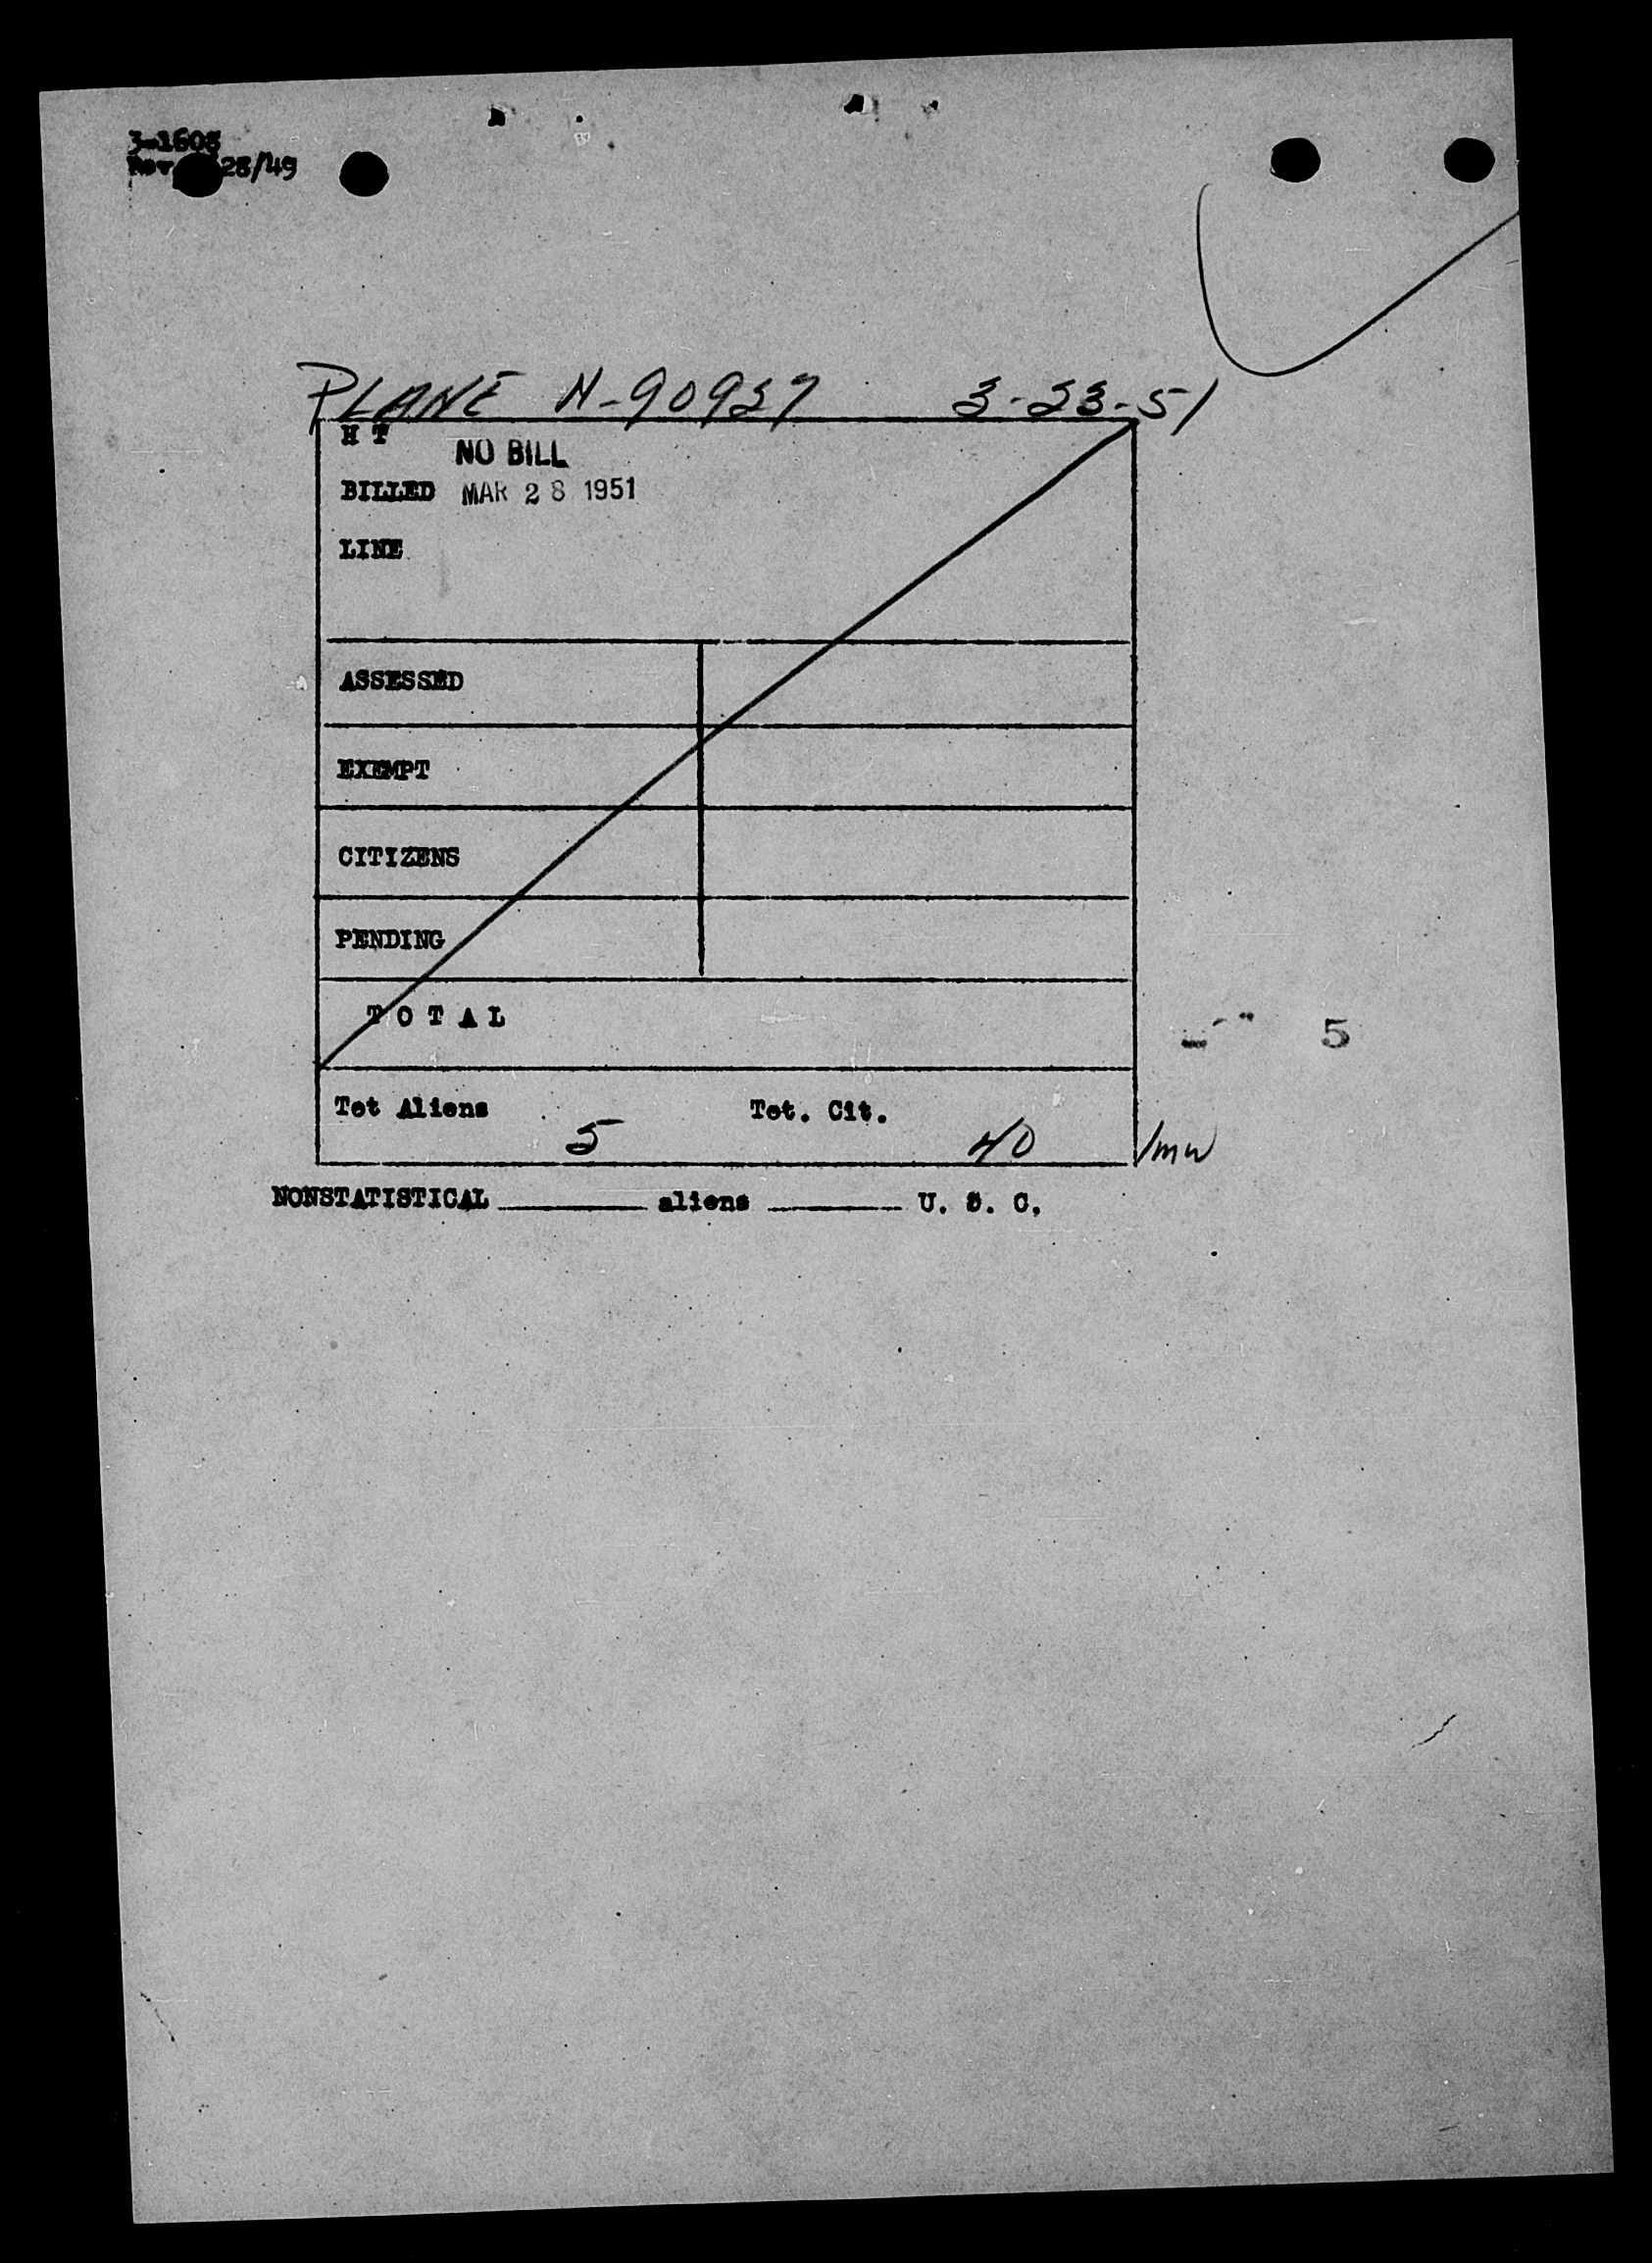 3-1608
Rev 28/49
PLANE N-90937 3-23-51
H T
NO BILL
BILLED MAR 28 1951
LINE
ASSESSED
EXEMPT
CITIZENS
PENDING
TOTAL
Tot Aliens Tot. Cit.
5 40 /mw
5
NONSTATISTICAL ______ aliens ______ U. S. C.